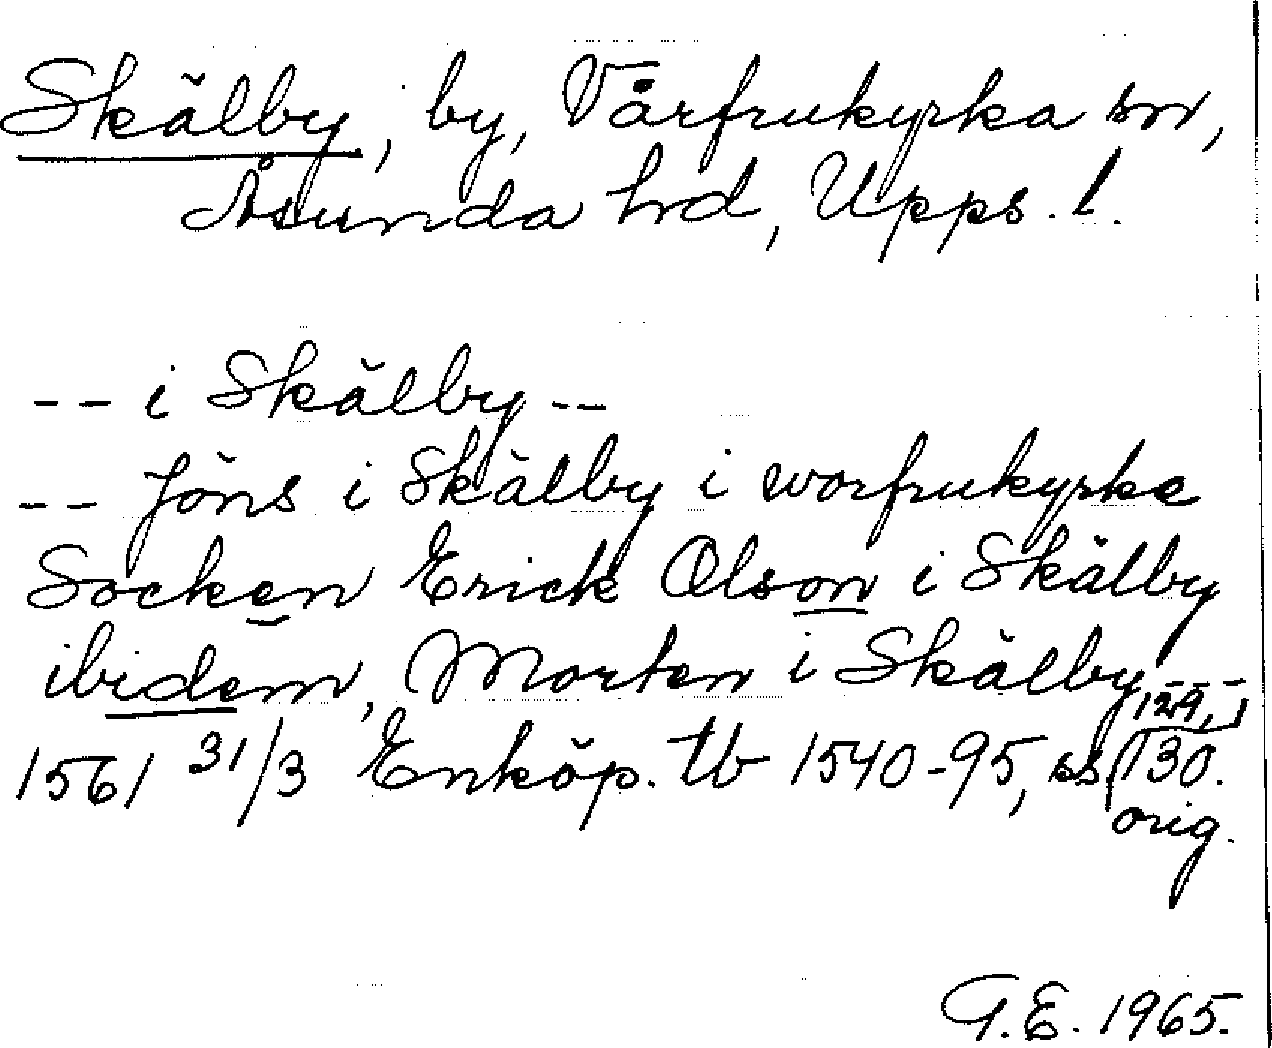 Skälby, by, Vårfrukyrka sn,
Åsunda hd, Upps. l.
-- i Skälby --
-- Jöns i Skälby i worfrukyrke
Socken Erick Olson i Skälby
ibidem, Morten i Skälby ---
1561 31/3 Enköp. tb 1540-95, ss. 129, 130.
orig.
G.E. 1965.